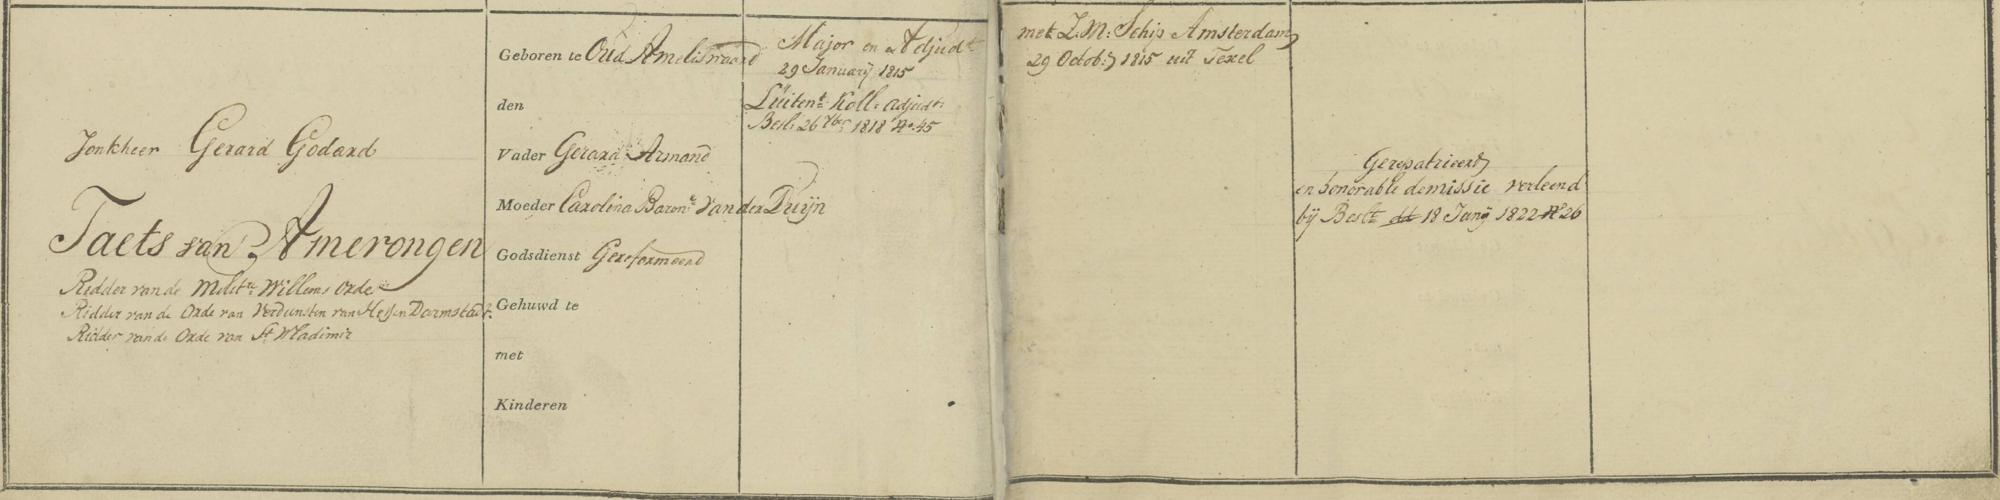 Jonkheer Gerard Godard
Taets van Amerongen
Ridder van de Milit.re Willems Orde
Ridder van de Orde van Verdiensten van Hessen Darmstadt.
Ridder van de Orde van St Wladimir
Geboren te Oud Ameliswaard
den
Vader Gerard Armand
Moeder Carolina Baron.e van der Duijn
Godsdienst Gereformeerd
Gehuwd te
met
Kinderen
Major en Adjudt
29 Januarij 1815
Luitent. Koll. adjudt.
Besl. 26 7ber 1818 No. 45
met Z.M. Schip Amsterdam
29 Octob. 1815 uit Texel
Gerepatrieerd
en honorable demissie verleend
bij Beslt. dd 18 Janij 1822 No 26